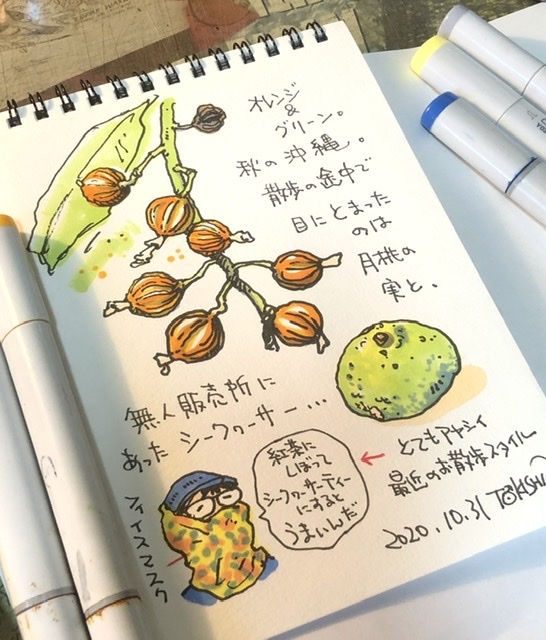 オレンジ
&
グリーン。
秋の沖縄。
散歩の途中で
目にとまった
のは
月桃の
実と、
無人販売所に
あったシークヮーサー…
紅茶に
しぼって
シークヮーサーティー
にすると
うまいんだ
とてもアヤシイ
最近のお散歩スタイル
フェイスマスク
2020.10.31